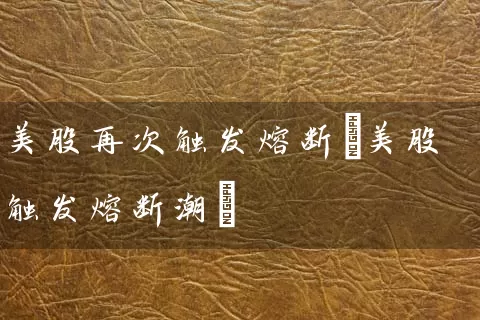 美股再次触发熔断美股
触发熔断潮